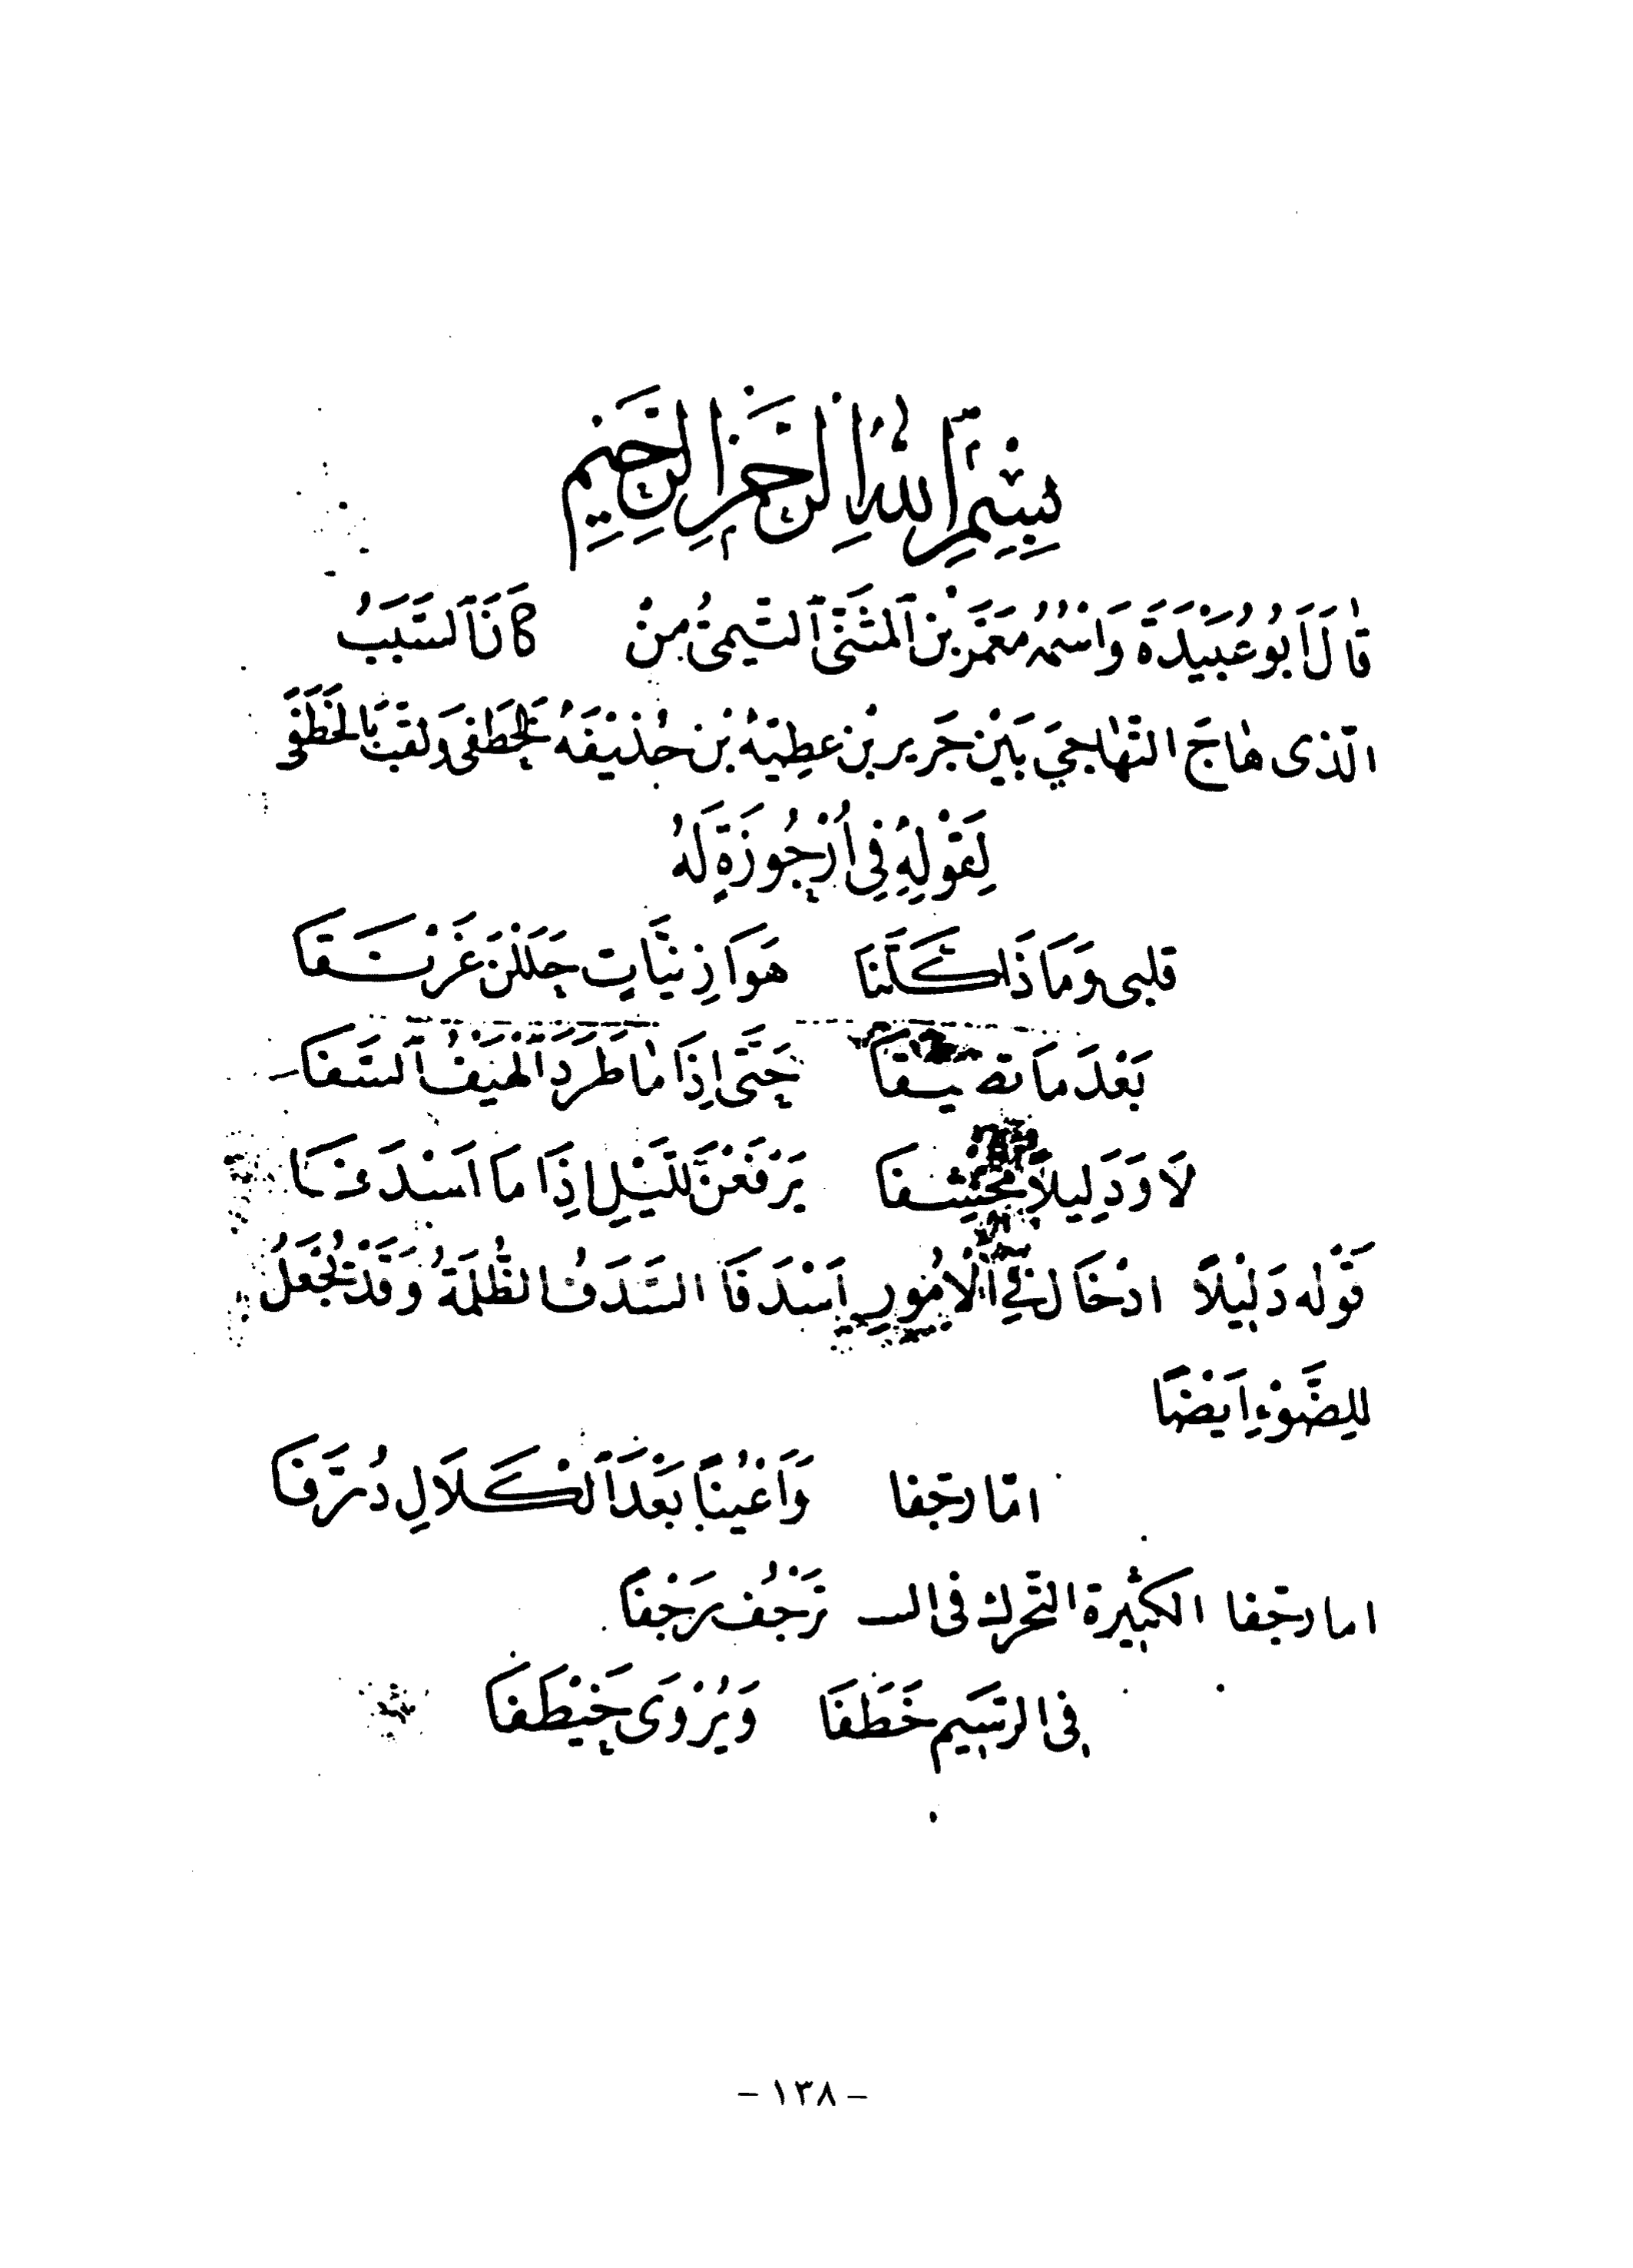 بِسْمِ اللهِ الرَّحْمٰنِ الرَّحِيمِ
قَالَ اَبُو عُبَيْدَةَ وَاسْمُهُ مَعْمَرُ بْنُ الْمُثَنَّى التَّيْمِىُّ مِنْ كَانَ السَّبَبُ
الَّذى هَاجَ التَّهَاجِيَ بَيْنَ جَرِير بن عَطِيَّةَ بْنِ حُذَيْفَةُ الخَطَفى وَلقبَ بَالخَطَفَى
لِقَوْلِهِ فِى اُرْجُوزَةٍ لَهُ
قلبى وَمَا ذَا كَلَّفَنَا هَوَازِنيَّاتٍ حَلَلْنَ غَرْنَقَا
بَعْدَ مَا تصَيَّفَا حَتَّى اِذَا مَا طَرَدَ الْهَيْفُ السَّفَا
لَا وَدَلِيلاً مخْشِفَا يَرْفَعْنَ للَّيْلِ اِذَا مَا اَسْدَفَا
قَوْله دَلِيْلاً ادْخَال فِي الْاُمُورِ اَسْدَفَا السَّدَفُ الظُّلْمَةُ وَقَدْ يُجْعَلُ
لِلضَّوْءِ اَيْضًا
امَّا رجّفا وَاَعْيُنًا بَعْدَ الْكَلَالِ ذُرَّفَا
اما رجّفا الكثيرة التحرك فى الســ تَرْجُف رَجْفًا
فِى الرَّسِيم خَطَفَا وَيُرْوَى خَيْطَفَا
- ١٣٨ -